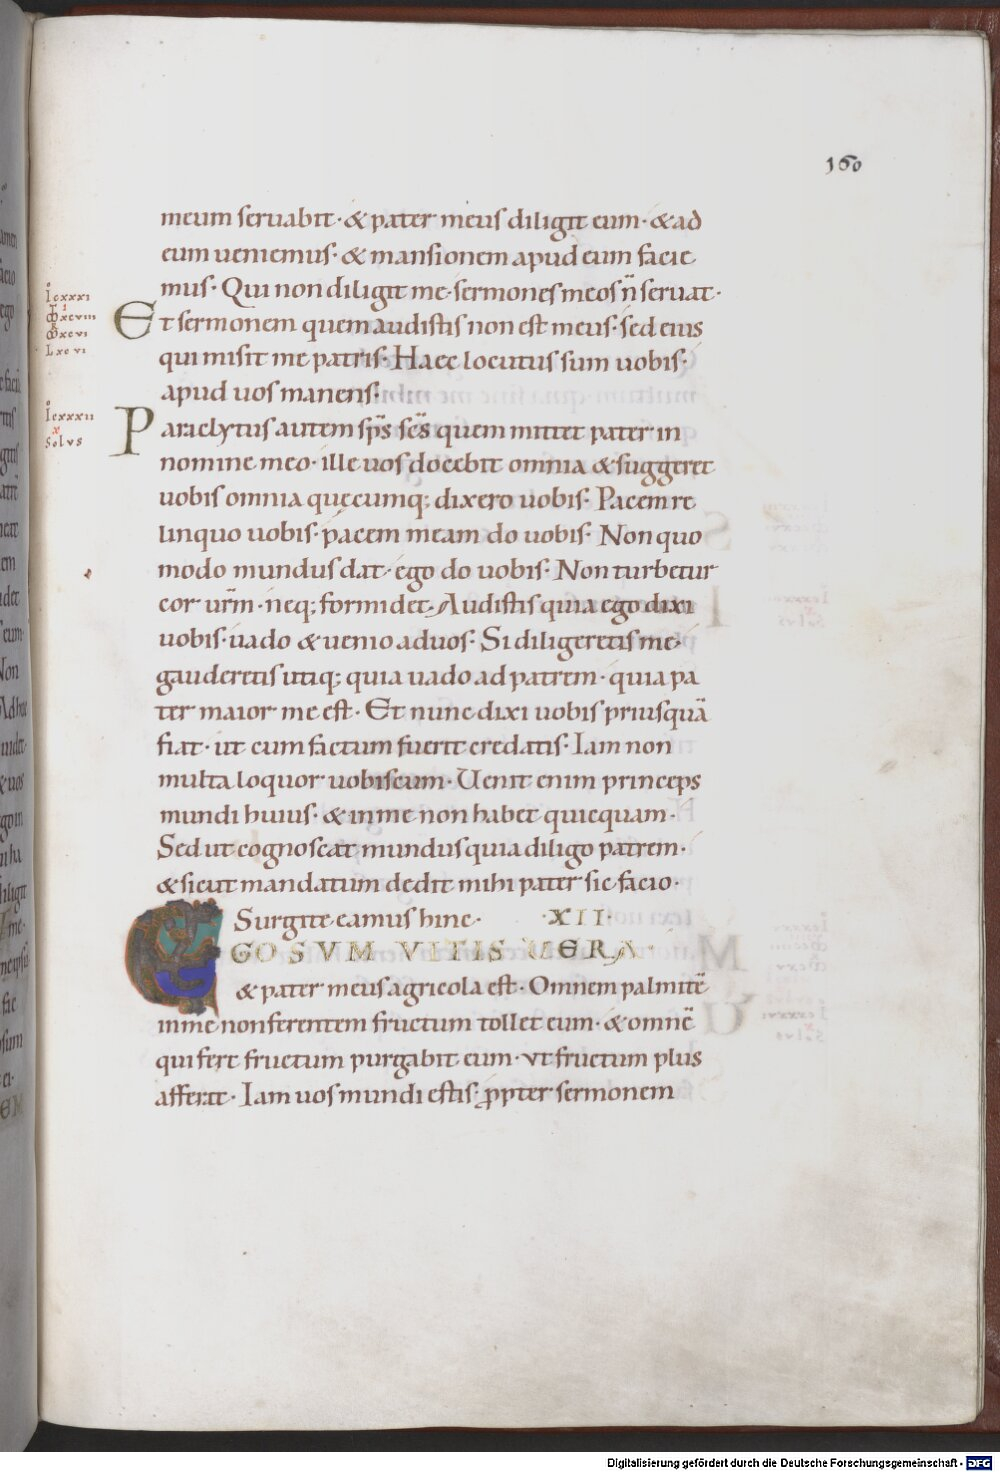 160
meum seruabit· & pater meus diligit eum· & ad
eum ueniemus· & mansionem apud eum facie
mus· Qui non diligit me· sermones meos n̄ seruat·
Et sermonem quem audistis non est meus· sed eius
qui misit me patris· Haec locutus sum uobis·
apud uos manens·
Paraclytus autem sp̄s sc̄s quem mittet pater in
nomine meo· ille uos docebit omnia & suggeret
uobis omnia quecumq; dixero uobis· Pacem re
linquo uobis· pacem meam do uobis· Non quo
modo mundus dat· ego do uobis· Non turbetur
cor ur̄m· neq; formidet· Audistis quia ego dixi
uobis· uado & uenio ad uos· Si diligeretis me·
gauderetis utiq; quia uado ad patrem· quia pa
ter maior me est· Et nunc dixi uobis priusquā
fiat· ut cum factum fuerit credatis· Iam non
multa loquor uobiscum· Uenit enim princeps
mundi huius· & in me non habet quicquam·
Sed ut cognoscat mundus quia diligo patrem·
& sicut mandatum dedit mihi pater sic facio·
Surgite eamus hinc· ·XII·
EGO SVM VITIS UERA·
& pater meus agricola est· Omnem palmitē
in me non ferentem fructum tollet eum· & omnē
qui fert fructum purgabit eum· vt fructum plus
afferat· Iam uos mundi estis· ꝓpter sermonem
Icxxxi
xcviii
xcvi
Lxcvi
Icxxxii
x
Solvs
Digitalisierung gefördert durch die Deutsche Forschungsgemeinschaft - DFG